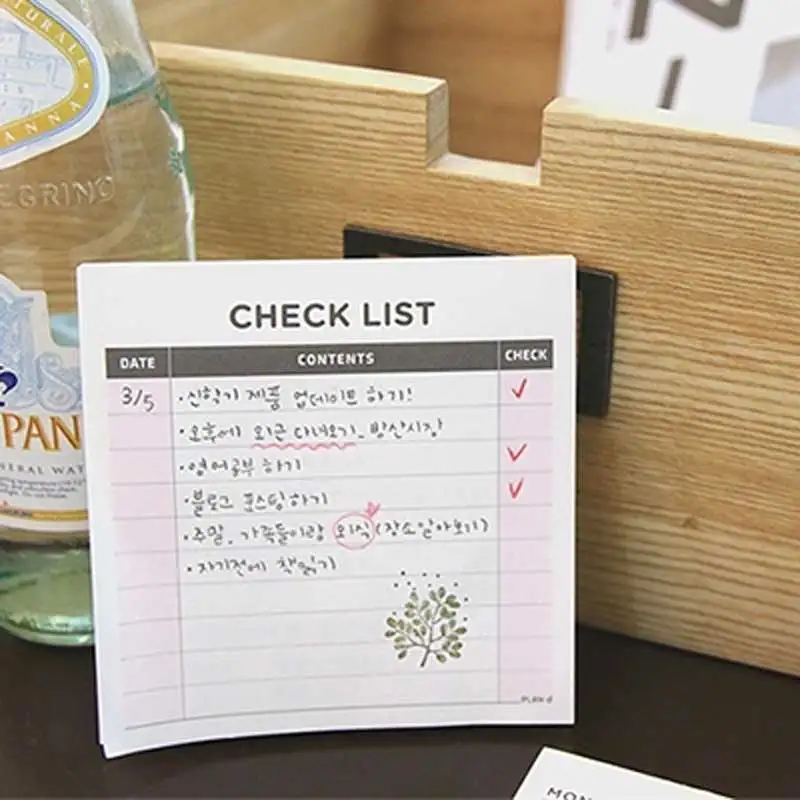 NATURALE
ANNA
PEGRINO
PAN
NERAL WAT
CHECK LIST
DATE CONTENTS CHECK
3/5 ·신학기 제품 업데이트 하기! ✓
·오후에 외근 다녀오기_방산시장
·영어공부 하기 ✓
·블로그 포스팅하기 ✓
·주말, 가족들이랑 외식 (장소알아보기)
·자기전에 책읽기
PLAN d
MON